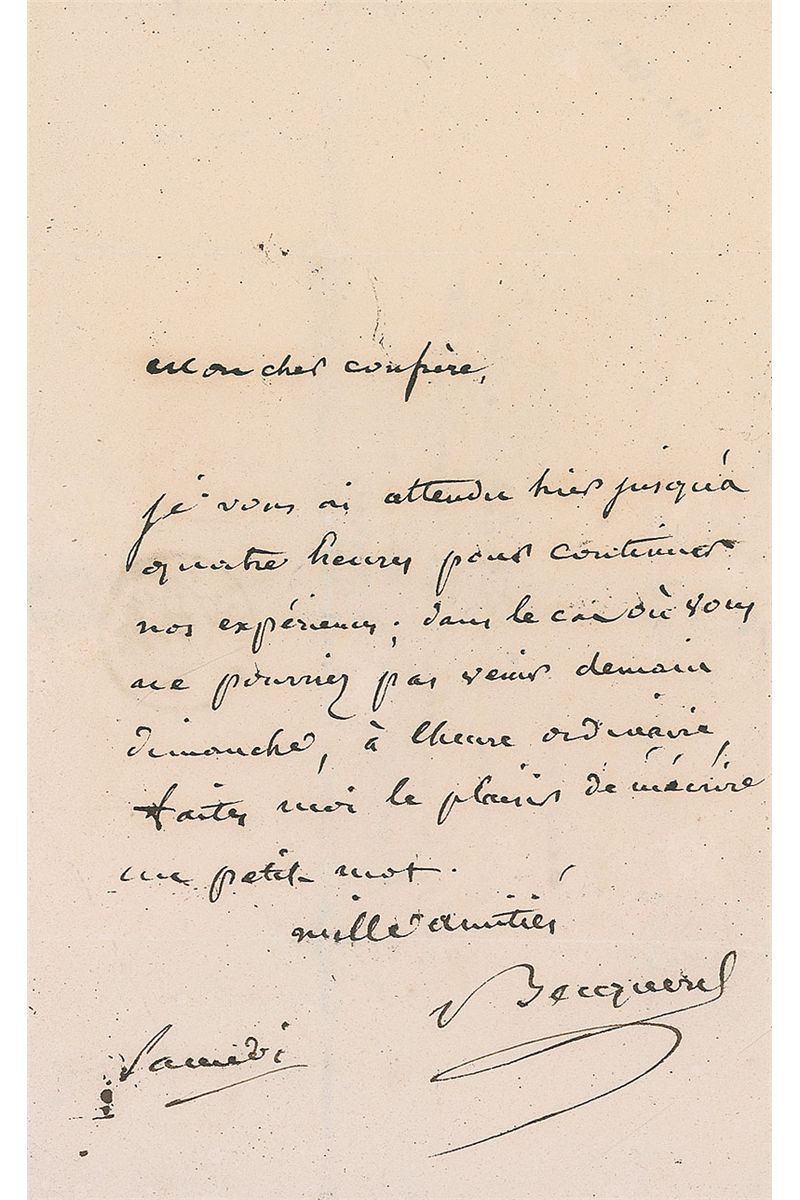 Mon cher confrère,
je vous ai attendu hier jusqu'à
quatre heures pour continuer
nos expériences ; dans le cas où vous
ne pourriez pas venir demain
dimanche, à l'heure ordinaire,
faites moi le plaisir de m'écrire
un petit mot.
mille amitiés
Becquerel
Samedi